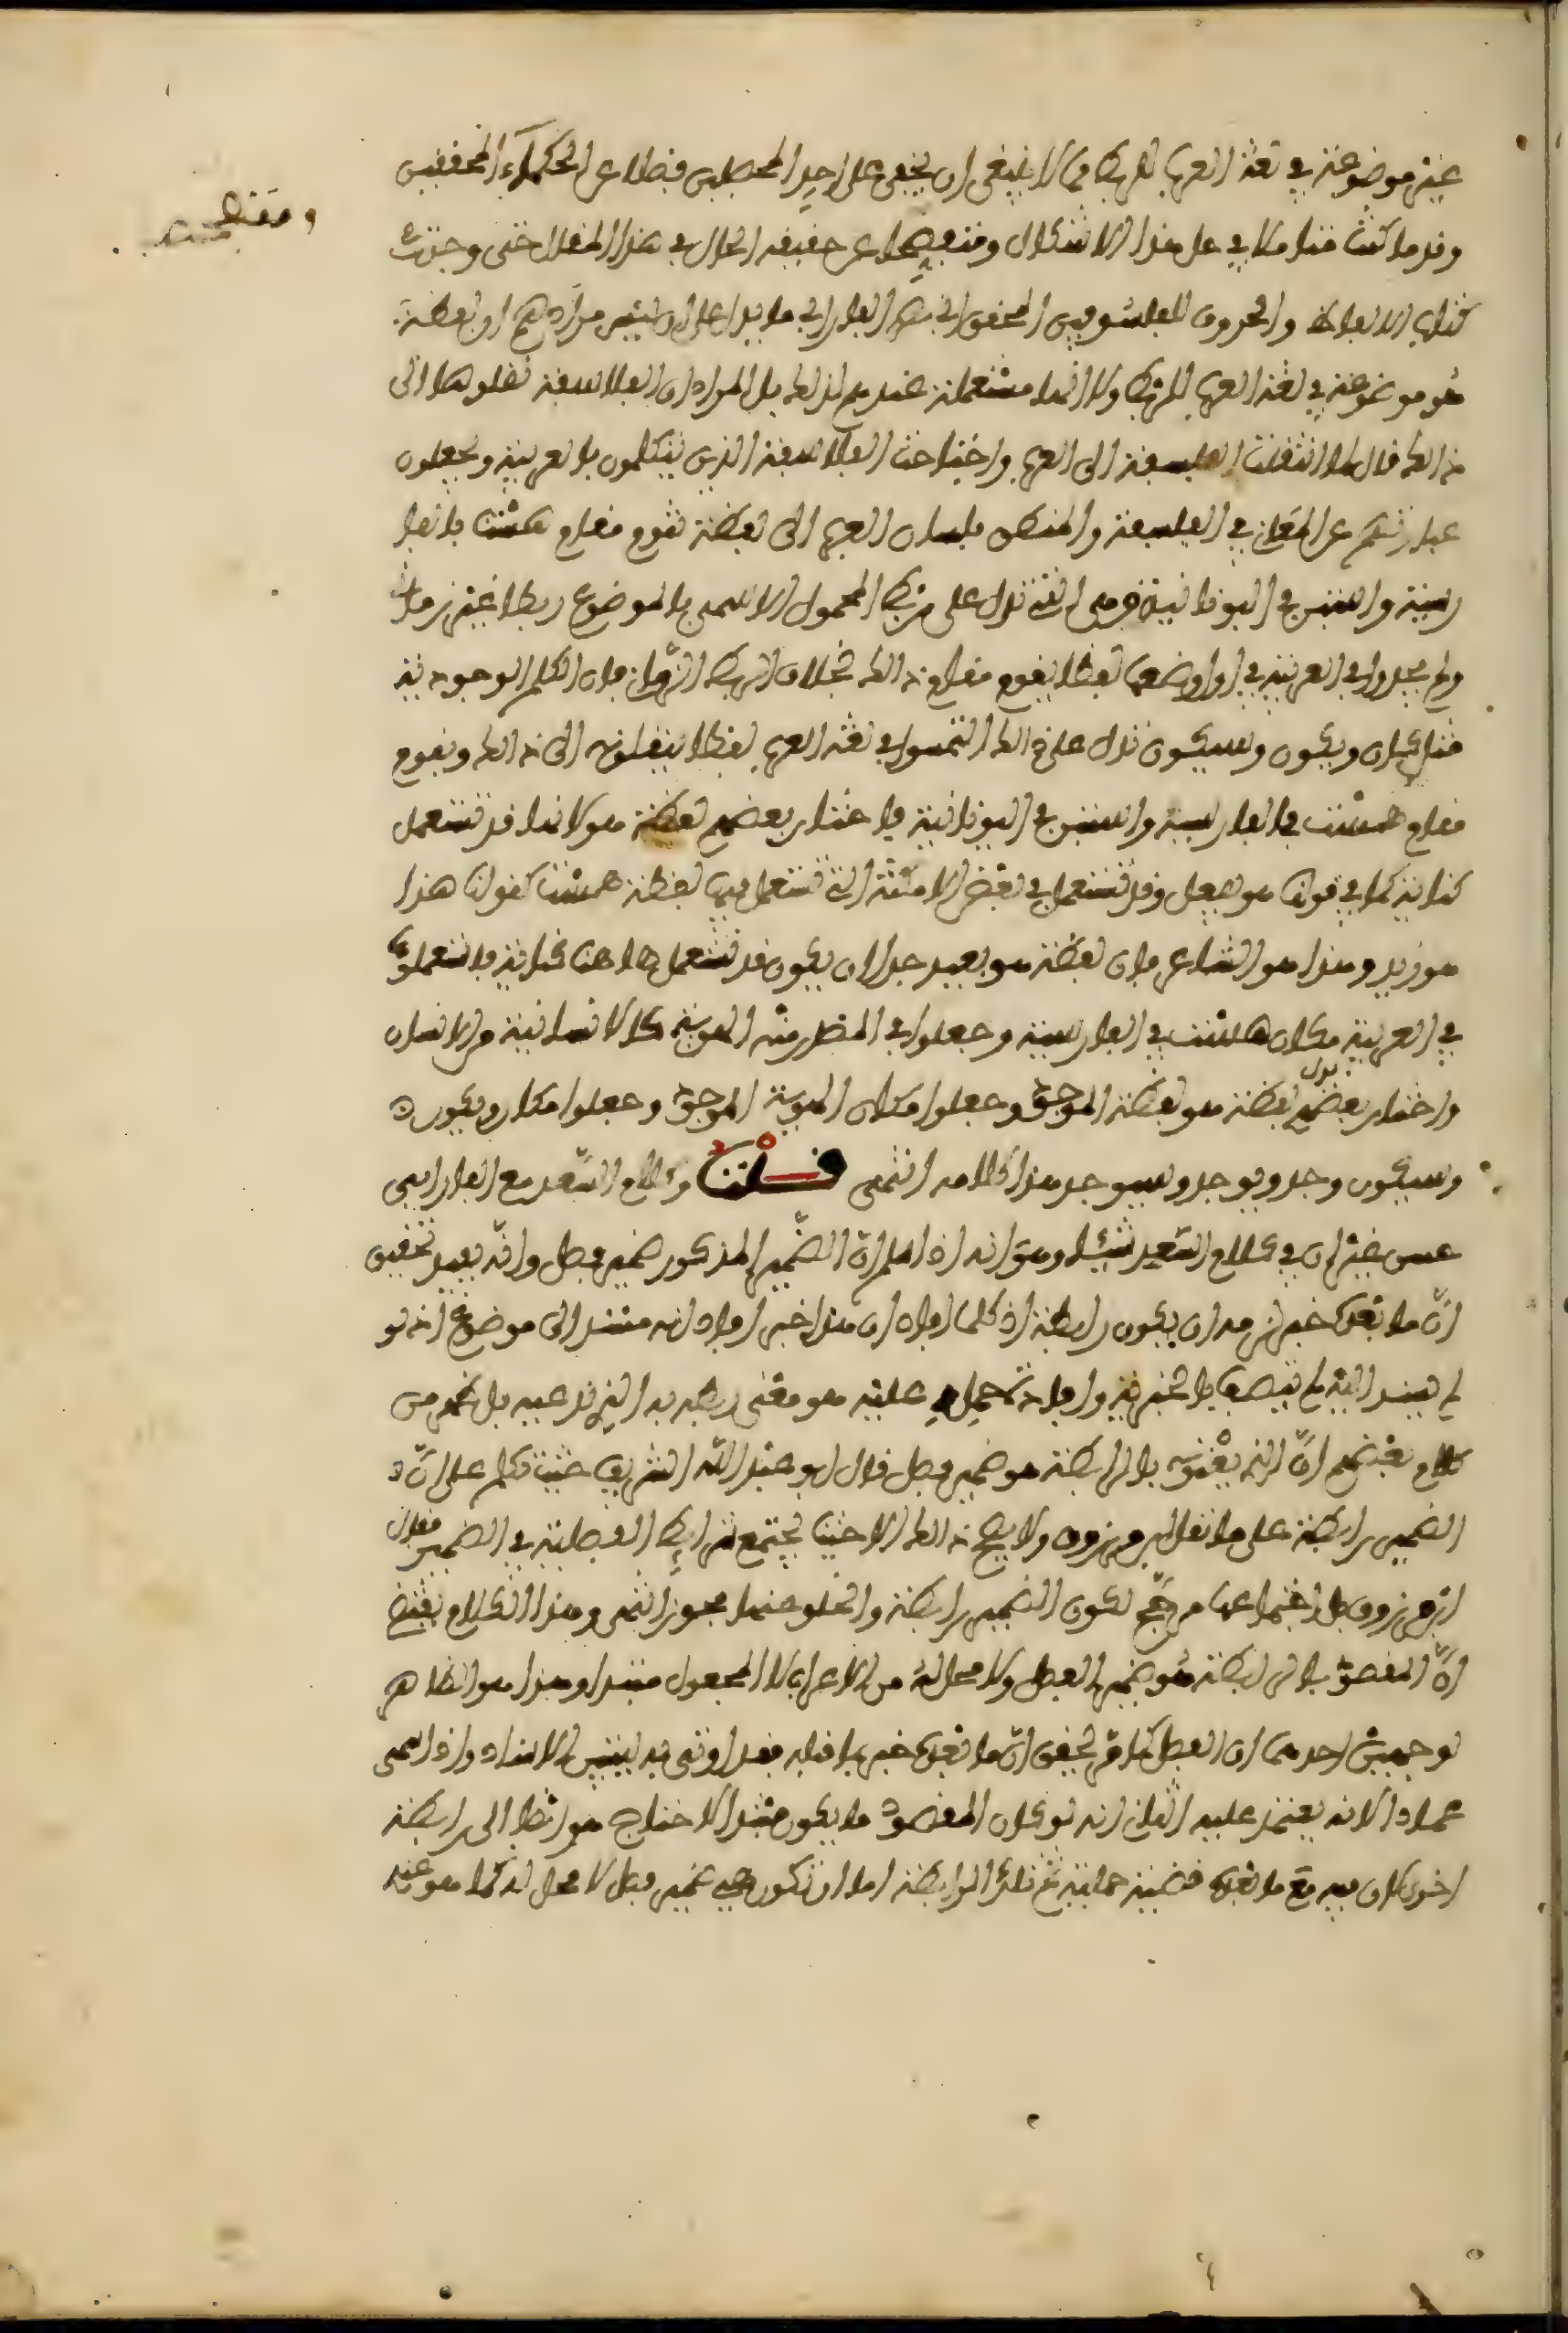 غير موضوعة في لغة العرب للربط مما لا ينبغي ان يخفى على احد المحصلين فضلا عن الحكماء المحققين
وقد ما كنت متاملا في حل هذا الاشكال ومتفحصا عن حقيقة الحال في هذا المقال حتى وجدت
كتاب الالفاظ والحروف للفيلسوف المحقق ابي نصر الفارابي ما يدل على ان ليس مرادهم ان لفظة
هو موضوعة في لغة العرب للربط ولا انها مستعملة عندهم لذلك بل المراد ان الفلاسفة نقلوها الى
ذلك قال لما انتقلت الفلسفة الى العرب واحتاجت الفلاسفة الذين يتكلمون بالعربية ويجعلون
عبارتهم عن المعاني في الفلسفة والمنطق بلسان العرب الى لفظة تقوم مقام هست بالفا
رسية واستين في اليونانية وهي التي تدل على ربط المحمول الاسمي بالموضوع ربطا غير زماني
ولم يجدوا في العربية في اول وضعها لفظا يقوم مقام ذلك بخلاف الربط الزماني فان الكلم الوجودية
مثل كان ويكون وسيكون تدل على ذلك التمسوا في لغة العرب لفظا ينقلونه الى ذلك ويقوم
مقام هست في الفارسية واستين في اليونانية فاختار بعضهم لفظة هو لانها قد تستعمل
كناية كما في قولنا هو يفعل وقد تستعمل في بعض الامكنة التي تستعمل فيها لفظة هست كقولنا هذا
هو زيد وهذا هو الشاعر فان لفظة هو بعيد جدا ان يكون قد تستعمل هاهنا كناية فاستعملوا
في العربية مكان هست في الفارسية وجعلوا في المصدر منه الهوية كالانسانية من الانسان
واختار بعضهم بدل لفظة هو لفظة الموجود وجعلوا مكان الهوية الوجود وجعلوا مكان ويكون
وسيكون وجد ويوجد وسيوجد هذا كلامه انتهى قلت وكلام السعد مع الفارابي
حسن غير ان في كلام السعد شيئا وهو انه اذا سلم ان الضمير المذكور ضمير فصل وانه يفيد تحقيق
ان ما بعده خبر لزمه ان يكون رابطة اذ كلما افاد ان هذا خبر افاد انه مسند الى موضوع اذ لو
لم يسند اليه لم يتصف بالخبرية وافادة حمل عليه هو معنى ربطه به الذي تدعيه بل نحو من
كلام بعضهم ان الذي يعنونه بالرابطة هو ضمير فصل قال ابو عبد الله الشريف حيث تكلم على ان
الضمير رابطة على ما نقل ابن مرزوق ولا يصح ذلك الا حيث تجتمع شرائط الفصلية في الضمير فقال
ابن مرزوق بل اجتماعها مرجح لكون الضمير رابطة والخلو عنها مجوز انتهى وهذا الكلام يقتضي
ان المقصود بالرابطة هو ضمير الفصل ولا محل له من الاعراب لا المجعول مبتدا وهذا هو الظاهر
لوجهين احدهما ان الفصل كما مر لتحقق ان ما بعده خبر لما قبله فقد اوتي به ليتبين الاسناد ولذا سمي
عمادا لانه يعتمد عليه الثاني انه لو كان المقصود ما يكون مبتدا لاحتاج هو ايضا الى رابطة
اخرى لان فيه مع ما بعده قضية حملية ثم تلك الرابطة اما ان تكون هي ضمير فصل لا محل له كما هو عند